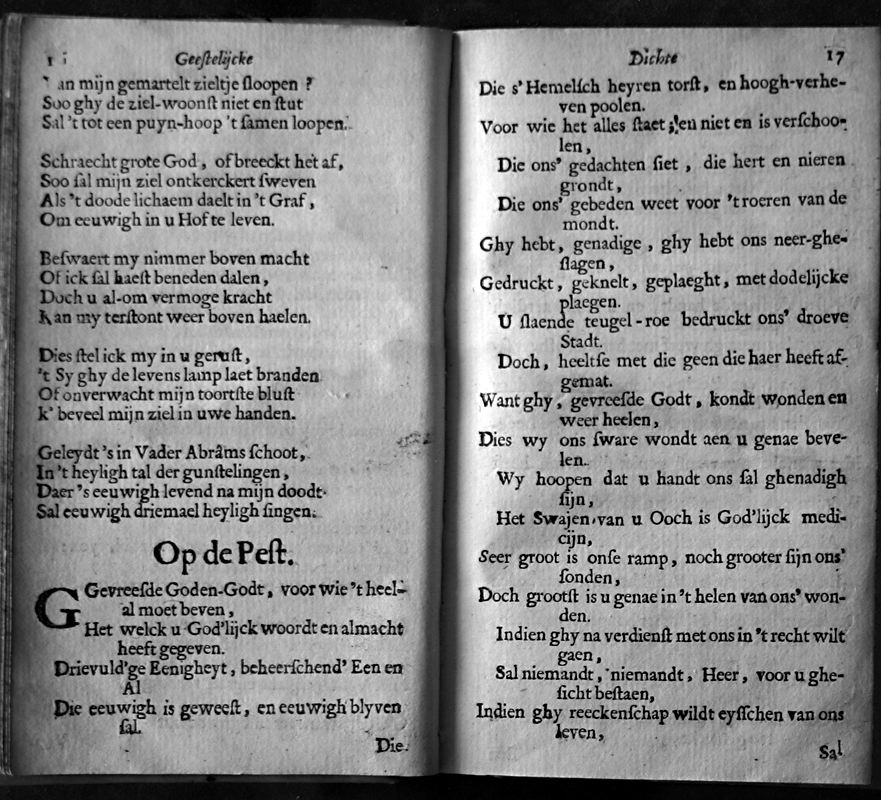 Geestelijcke
an mijn gemartelt zieltje sloopen ?
Soo ghy de ziel-woonst niet en stut
Sal 't tot een puyn-hoop 't samen loopen.
Schraecht grote God, of breeckt het af,
Soo sal mijn ziel ontkerckert sweven
Als 't doode lichaem daelt in 't Graf,
Om eeuwigh in u Hof te leven.
Beswaert my nimmer boven macht
Of ick sal haest beneden dalen,
Doch u al-om vermoge kracht
Kan my terstont weer boven haelen.
Dies stel ick my in u gerust,
't Sy ghy de levens lamp laet branden
Of onverwacht mijn toortste blust
k' beveel mijn ziel in uwe handen.
Geleydt 's in Vader Abrâms schoot,
In 't heyligh tal der gunstelingen,
Daer 's eeuwigh levend na mijn doodt
Sal eeuwigh driemael heyligh singen.
Op de Pest.
GGevreesde Goden-Godt, voor wie 't heel-
al moet beven,
Het welck u God'lijck woordt en almacht
heeft gegeven.
Drievuld'ge Eenigheyt, beheerschend' Een en
Al
Die eeuwigh is geweest, en eeuwigh blyven
sal.
Die.
Dichte 17
Die s' Hemelsch heyren torst, en hoogh-verhe-
ven poolen.
Voor wie het alles staet ; en niet en is verschoo-
len,
Die ons' gedachten siet, die hert en nieren
grondt,
Die ons' gebeden weet voor 't roeren van de
mondt.
Ghy hebt, genadige, ghy hebt ons neer-ghe-
slagen,
Gedruckt, geknelt, geplaeght, met dodelijcke
plaegen.
U slaende teugel-roe bedruckt ons' droeve
Stadt.
Doch, heeltse met die geen die haer heeft af-
gemat.
Want ghy, gevreesde Godt, kondt wonden en
weer heelen,
Dies wy ons sware wondt aen u genae beve-
len.
Wy hoopen dat u handt ons sal ghenadigh
sijn,
Het Swajen van u Ooch is God'lijck medi-
cijn,
Seer groot is onse ramp, noch grooter sijn ons'
sonden,
Doch grootst is u genae in 't helen van ons' won-
den.
Indien ghy na verdienst met ons in 't recht wilt
gaen,
Sal niemandt, niemandt, Heer, voor u ghe-
sicht bestaen,
Indien ghy reeckenschap wildt eysschen van ons
leven,
Sal